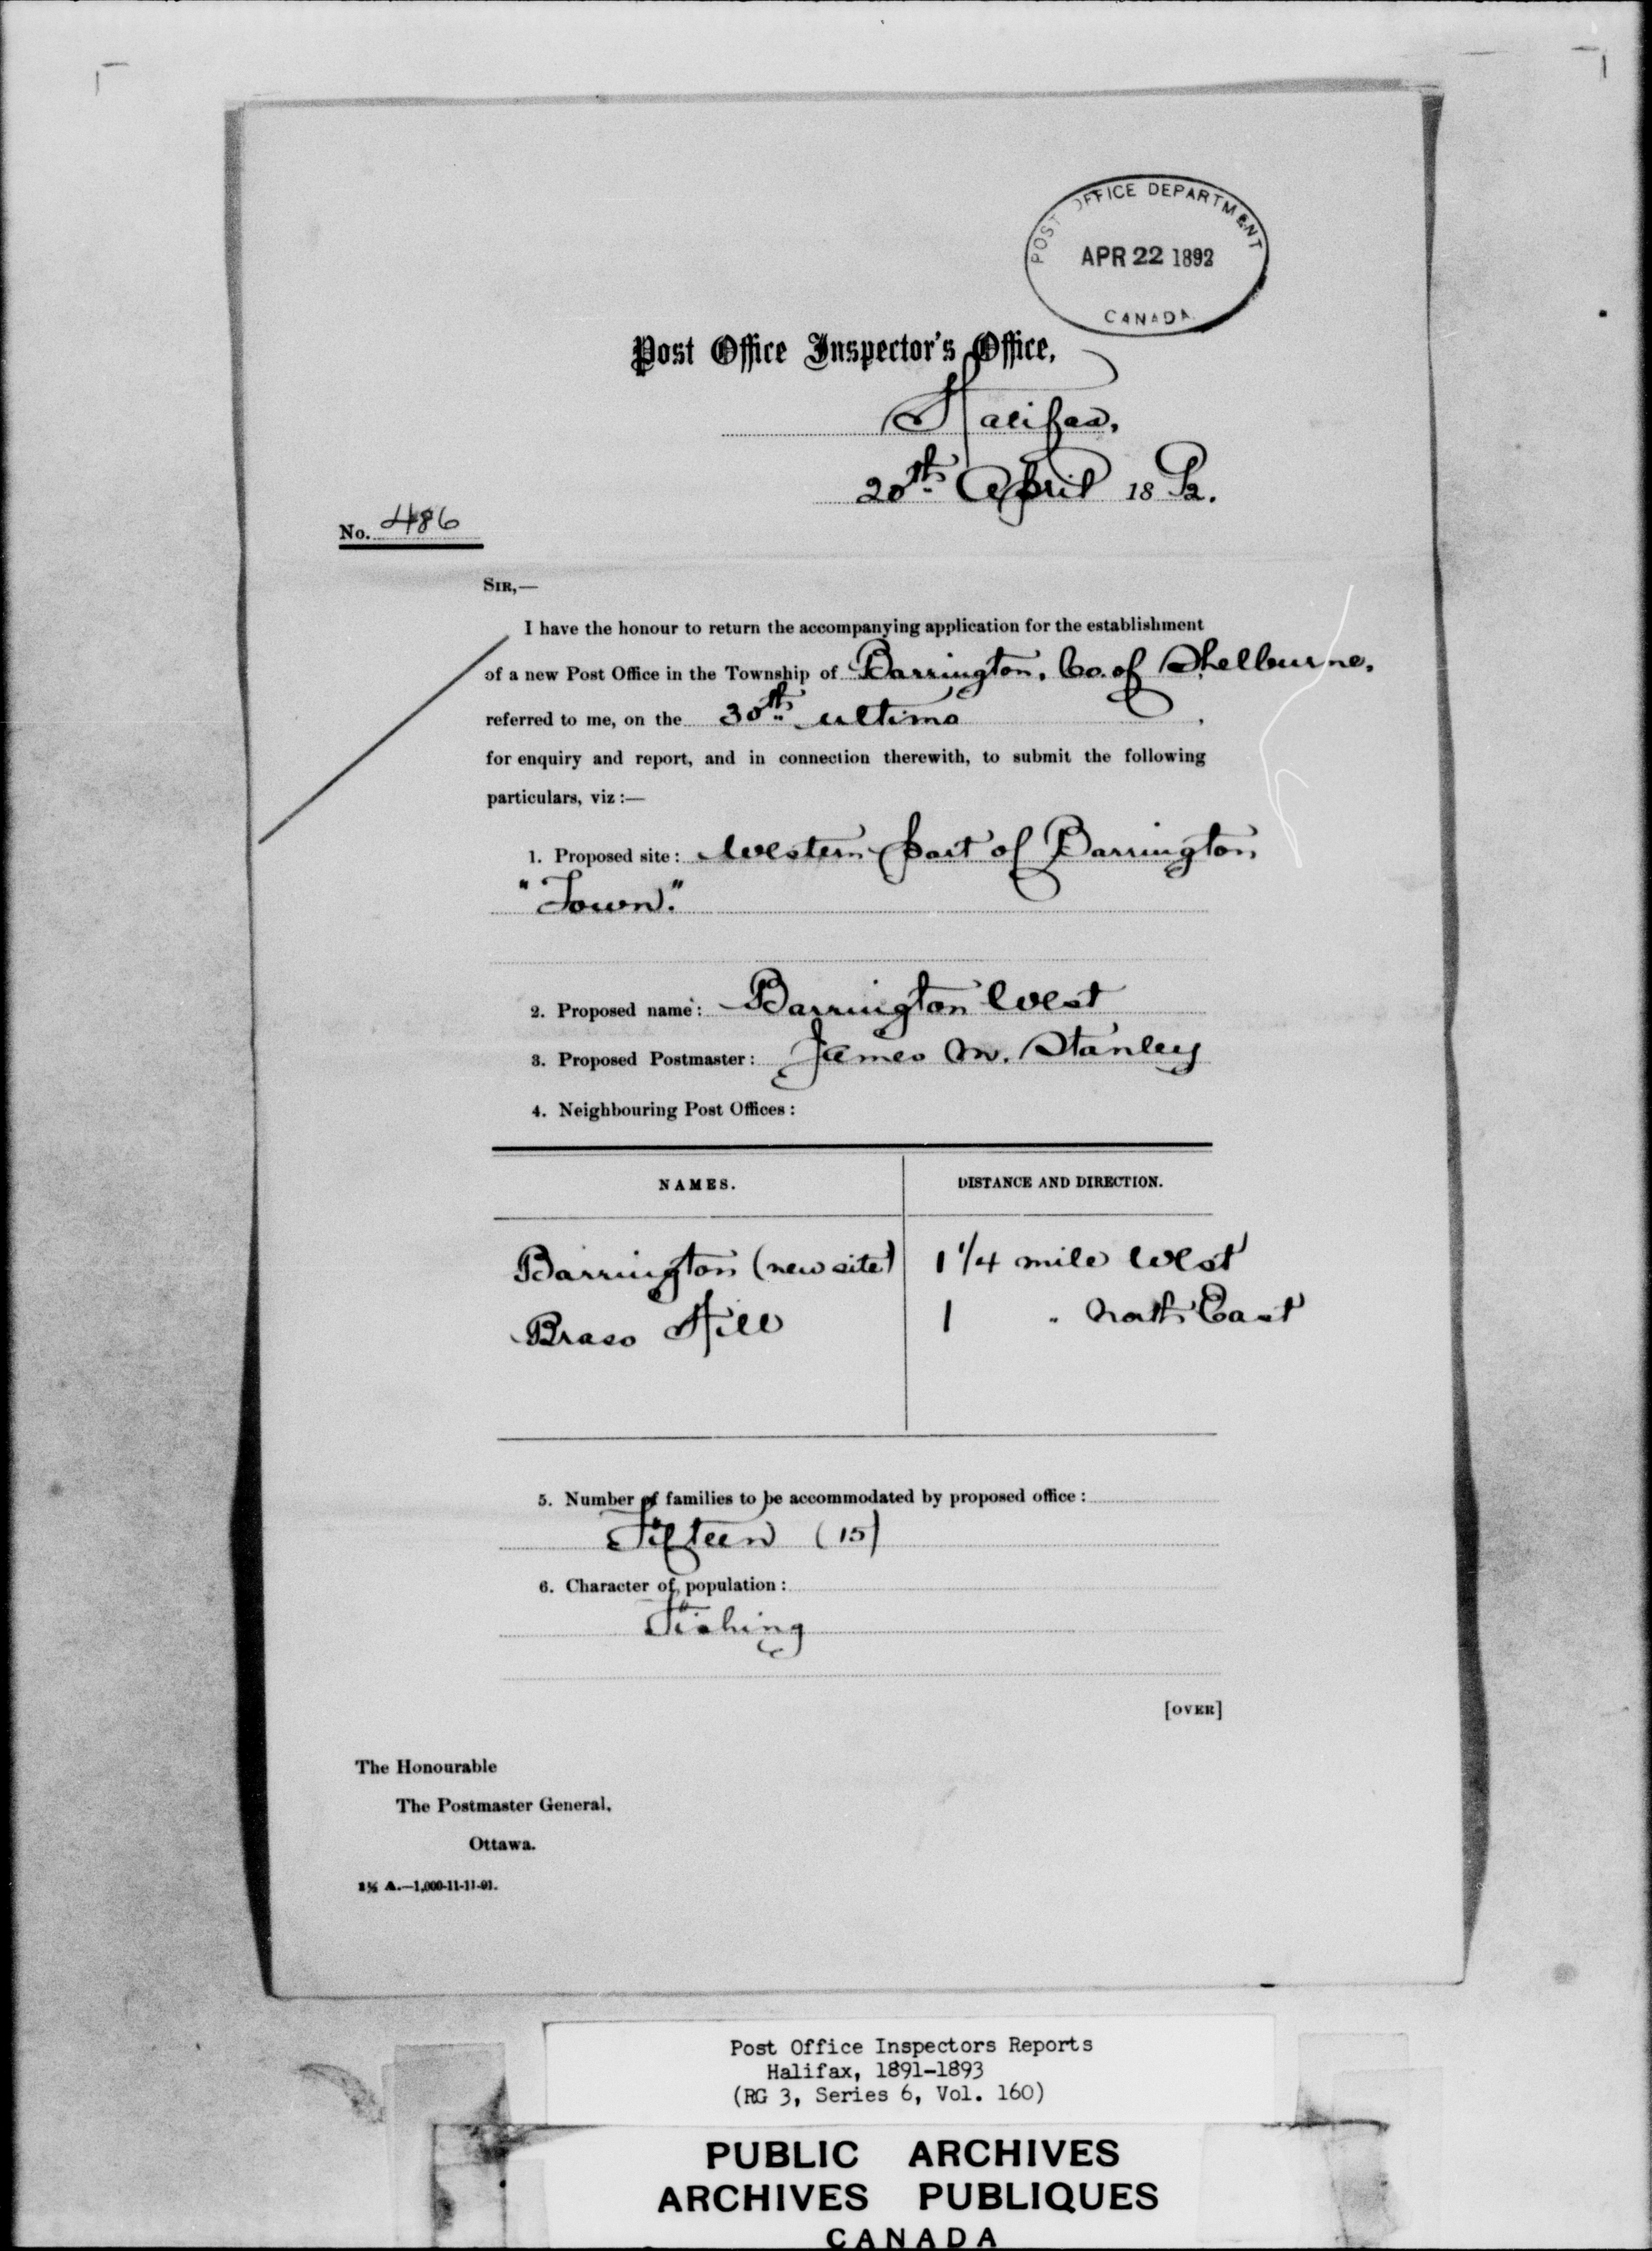 POST OFFICE DEPARTMENT
APR 22 1892
CANADA
Post Office Inspector's Office,
Halifax,
20th April 1892.
No. 486
SIR,—
I have the honour to return the accompanying application for the establishment
of a new Post Office in the Township of Barrington, Co. of Shelburne,
referred to me, on the 30th ultimo ,
for enquiry and report, and in connection therewith, to submit the following
particulars, viz :—
1. Proposed site: Western part of Barrington
"Town."
2. Proposed name: Barrington West
3. Proposed Postmaster: James M. Stanley
4. Neighbouring Post Offices:
NAMES. DISTANCE AND DIRECTION.
Barrington (new site) 1 1/4 mile West
Brass Hill 1 " North East
5. Number of families to be accommodated by proposed office:
Fifteen (15)
6. Character of population:
Fishing
[OVER]
The Honourable
The Postmaster General,
Ottawa.
A.—1,000-11-11-91.
Post Office Inspectors Reports
Halifax, 1891-1893
(RG 3, Series 6, Vol. 160)
PUBLIC ARCHIVES
ARCHIVES PUBLIQUES
CANADA